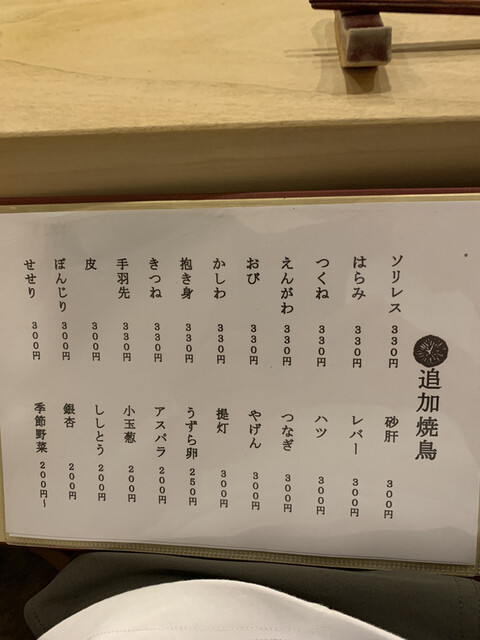 追加焼鳥
ソリレス 330円
はらみ 330円
つくね 330円
えんがわ 330円
おび 330円
かしわ 330円
抱き身 330円
きつね 330円
手羽先 330円
皮 300円
ぼんじり 300円
せせり 300円
砂肝 300円
レバー 300円
ハツ 300円
つなぎ 300円
やげん 300円
提灯 300円
うずら卵 250円
アスパラ 200円
小玉葱 200円
ししとう 200円
銀杏 200円
季節野菜 200円~